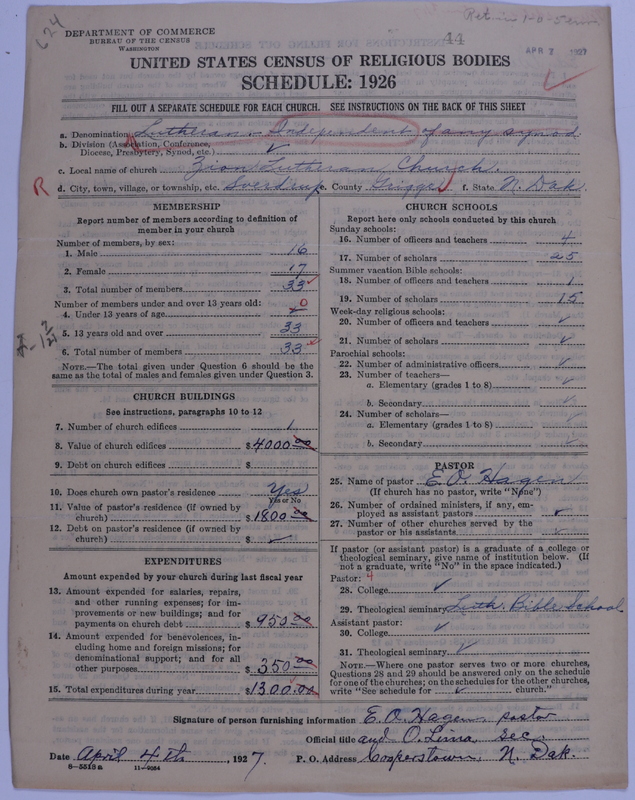 624
Retain 1-0-5 ern
DEPARTMENT OF COMMERCE
BUREAU OF THE CENSUS
WASHINGTON
44
APR 7 1927
UNITED STATES CENSUS OF RELIGIOUS BODIES
SCHEDULE: 1926
FILL OUT A SEPARATE SCHEDULE FOR EACH CHURCH. SEE INSTRUCTIONS ON THE BACK OF THIS SHEET
a. Denomination Lutheran - Independent of any synod
b. Division (Association, Conference,
Diocese, Presbytery, Synod, etc.) ✓
c. Local name of church Zion Lutheran Church.
R d. City, town, village, or township, etc. Overdrup e. County Griggs f. State N. Dak.
MEMBERSHIP
Report number of members according to definition of
member in your church
Number of members, by sex:
1. Male 16
2. Female 17
3. Total number of members 33
Number of members under and over 13 years old:
4. Under 13 years of age 0
5. 13 years old and over 33
6. Total number of members 33
NOTE.—The total given under Question 6 should be
the same as the total of males and females given under Question 3.
CHURCH BUILDINGS
See instructions, paragraphs 10 to 12
7. Number of church edifices 1
8. Value of church edifices $ 4000.00
9. Debt on church edifices $
10. Does church own pastor's residence Yes
Yes or No
11. Value of pastor's residence (if owned by
church) $ 1800.00
12. Debt on pastor's residence (if owned by
church) $ ✓
EXPENDITURES
Amount expended by your church during last fiscal year
13. Amount expended for salaries, repairs,
and other running expenses; for im-
provements or new buildings; and for
payments on church debt $ 950.00
14. Amount expended for benevolences, in-
cluding home and foreign missions; for
denominational support; and for all
other purposes $ 350.00
15. Total expenditures during year $ 1300.00
CHURCH SCHOOLS
Report here only schools conducted by this church
Sunday schools:
16. Number of officers and teachers 4
17. Number of scholars 25
Summer vacation Bible schools:
18. Number of officers and teachers 1
19. Number of scholars 15
Week-day religious schools:
20. Number of officers and teachers ✓
21. Number of scholars ✓
Parochial schools:
22. Number of administrative officers ✓
23. Number of teachers—
a. Elementary (grades 1 to 8) ✓
b. Secondary ✓
24. Number of scholars—
a. Elementary (grades 1 to 8) ✓
b. Secondary ✓
PASTOR
25. Name of pastor E. O. Hagen
(If church has no pastor, write "None")
26. Number of ordained ministers, if any, em-
ployed as assistant pastors ✓
27. Number of other churches served by the
pastor or his assistants ✓
If pastor (or assistant pastor) is a graduate of a college or
theological seminary, give name of institution below. (If
not a graduate, write "No" in the space indicated.)
Pastor: 4
28. College ✓
29. Theological seminary Luth. Bible School
Assistant pastor:
30. College ✓
31. Theological seminary ✓
NOTE.—Where one pastor serves two or more churches,
Questions 28 and 29 should be answered only on the schedule
for one of the churches; on the schedules for the other churches,
write "See schedule for ✓ church."
Signature of person furnishing information E. O. Hagen, pastor
Official title and O. Lima, sec.
Date April 4th, 1927. P. O. Address Cooperstown, N. Dak.
8-5518a 11-9084